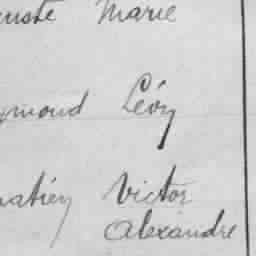 uste Marie
ymond Léon
Victor
Alexandre